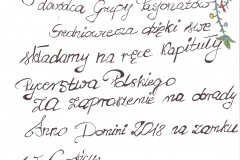 dowódca Grupy Pasjonatów
Średniowiecza dzięki swe
składamy na ręce Kapituły
Rycerstwa Polskiego
za zaproszenie na obrady
Anno Domini 2018 na zamku